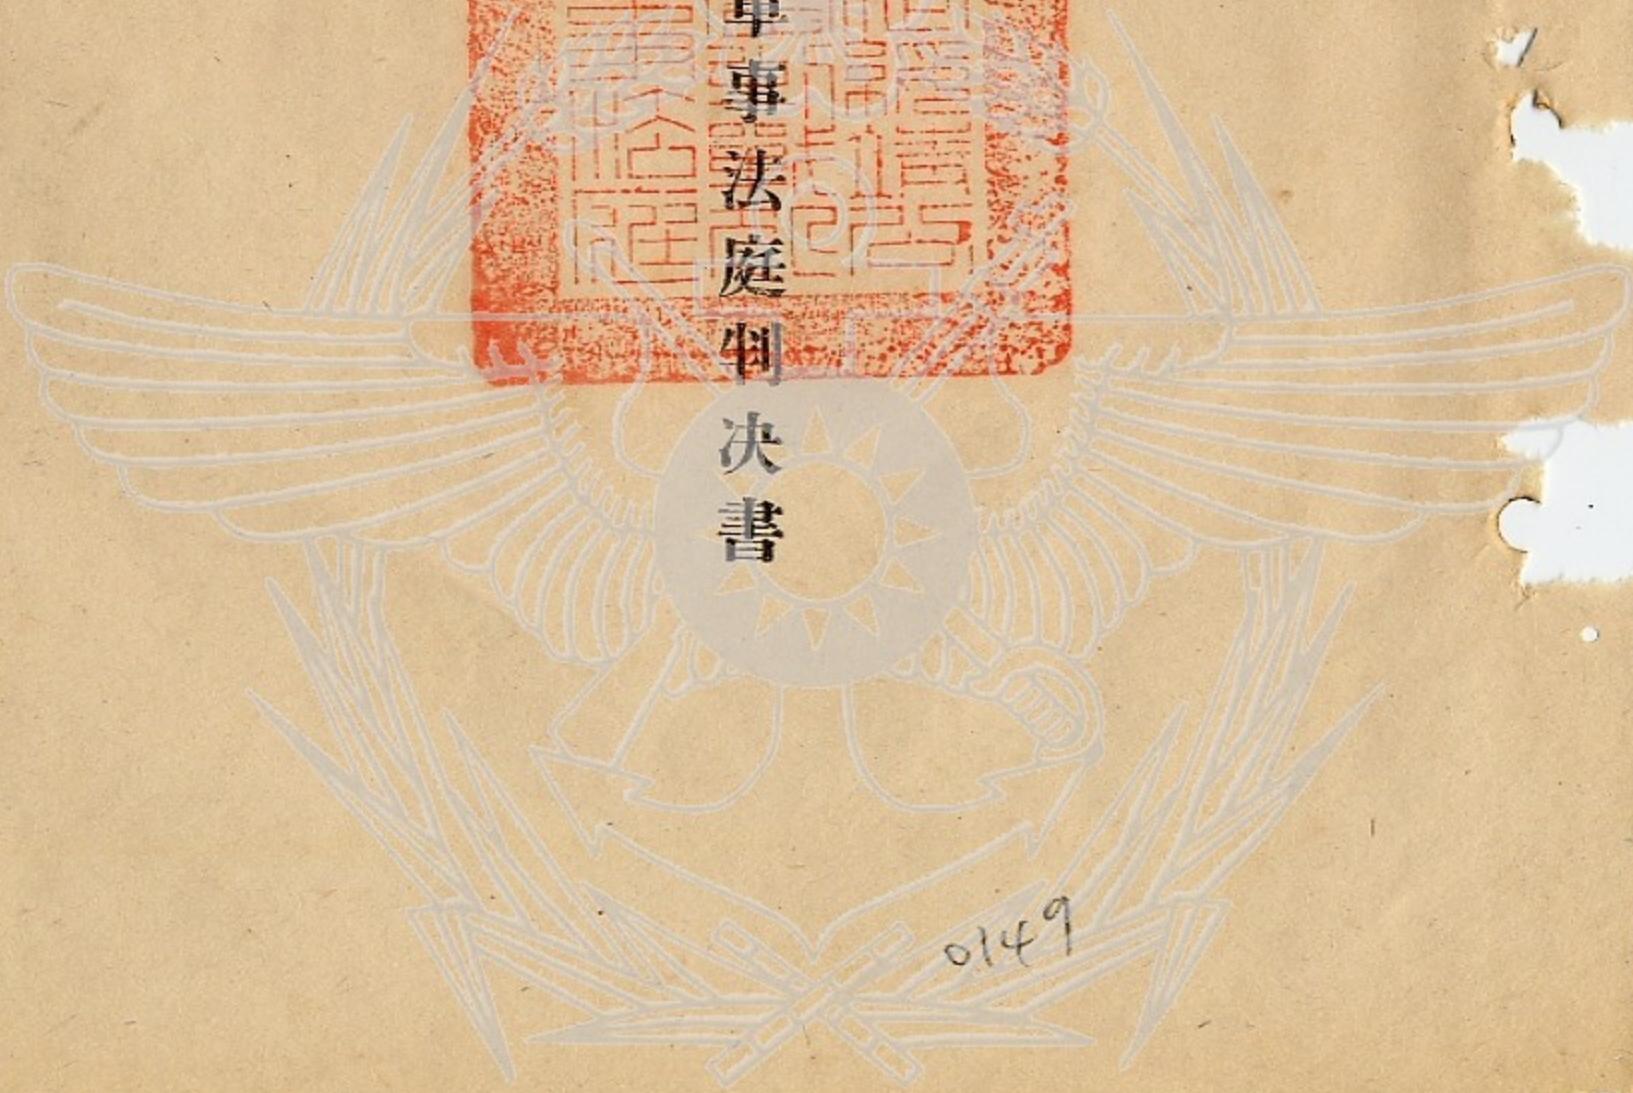 軍事法庭判决書
0149